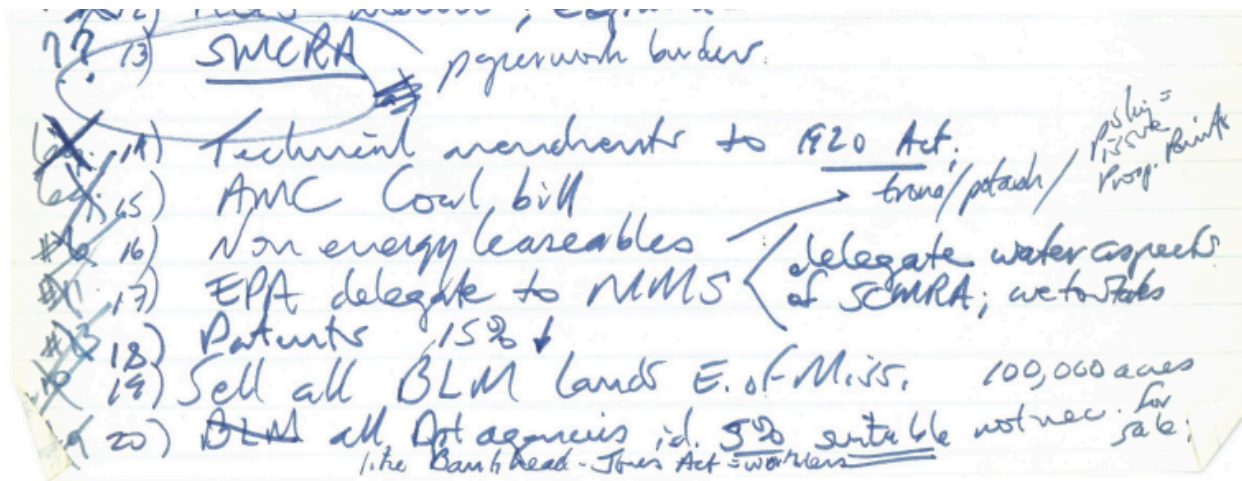 ?? 13) SMCRA paperwork burden.
14) Technical amendments to 1920 Act.
15) AMC Coal bill
trona/potash/
Prosp. Permits
16) Non energy leaseables
17) EPA delegate to MMS
delegate water aspects
of SCMRA; we to States
18) Patents 15% ↓
19) Sell all BLM lands E. of Miss. 100,000 acres
20) BLM all DOI agencies id. 5% suitable not nec. for
sale;
like Bankhead-Jones Act = worthless